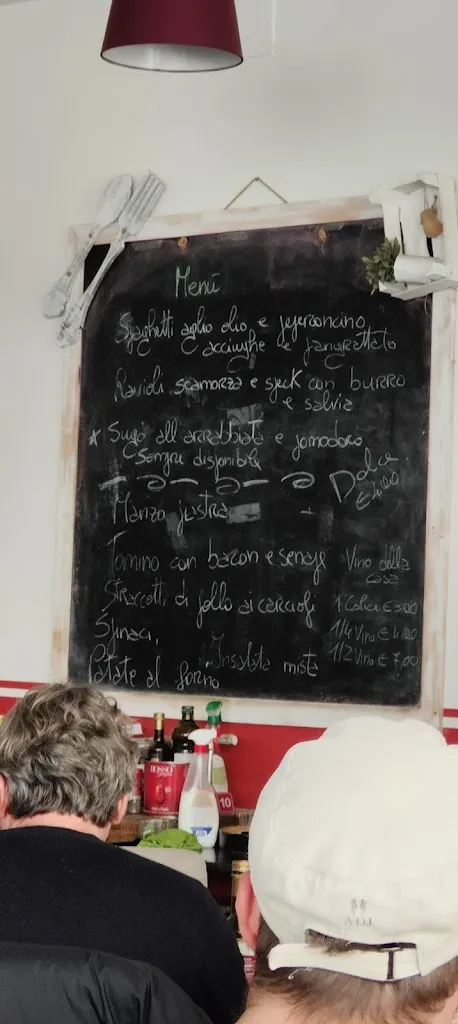 Menú
Spaghetti aglio olio e peperoncino
acciughe e pangrattato
Ravioli scamorza e speck con burro
e salvia
* Sugo all'arrabbiata e pomodoro
sempre disponibile
Dolce
Manzo
Tomino con bacon e senape
Vino della
casa
Straccetti di pollo ai carciofi
1 Calice € 3,00
Spinaci,
1/4 Vino € 4,00
Patate al forno
Insalata mista
1/2 Vino € 7,00
10